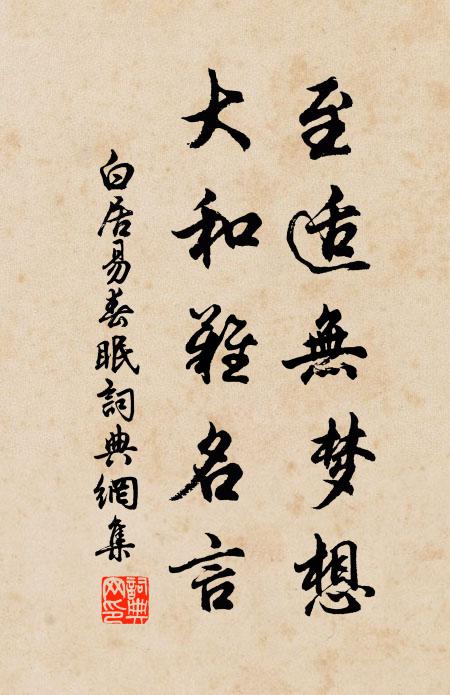 至适無梦想
大和難名言
白居易春眠詞典網集
詞典網印